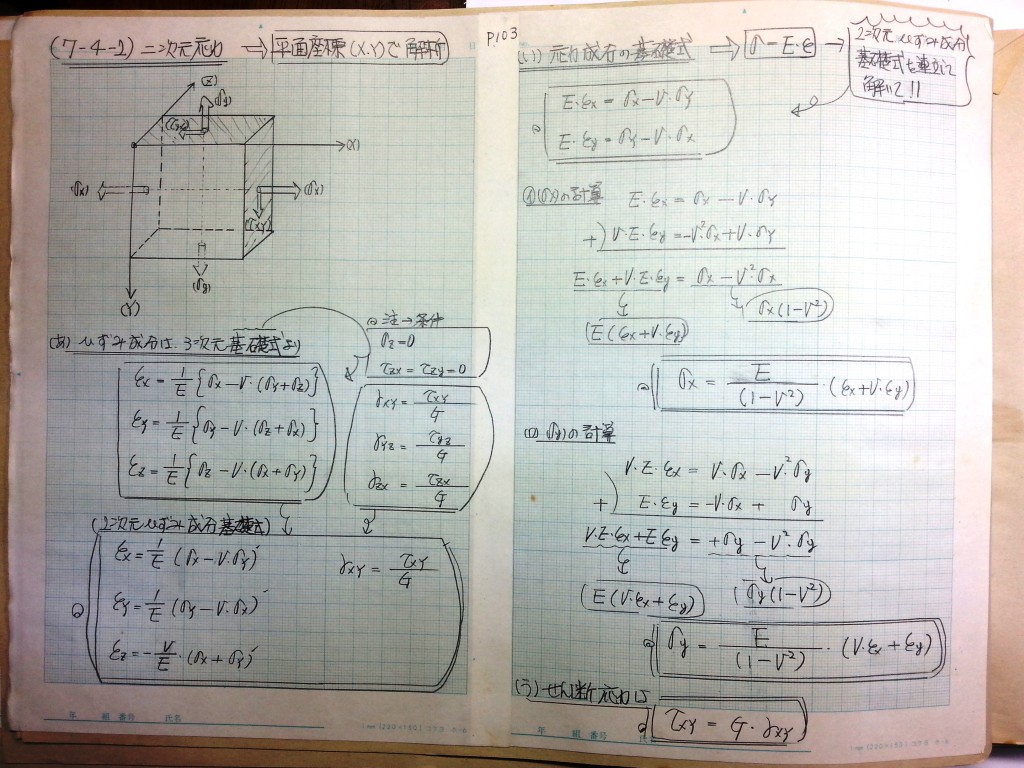 (7-4-2) 二次元応力 ⇒ 平面座標(X.Y)で解析
(Z)
(σy)
(τyx)
(X)
(σx)
(σx)
(τxy)
(σy)
(Y)
(あ) ひずみ成分は、3次元基礎式より
注→条件
σz=0
τzx = τzy=0
εx = 1/E {σx-ν・(σy+σz)}
εy = 1/E {σy-ν・(σz+σx)}
εz = 1/E {σz-ν・(σx+σy)}
γxy = τxy/G
γyz = τyz/G
γzx = τzx/G
(2次元ひずみ成分基礎式)
εx = 1/E (σx-ν・σy)
εy = 1/E (σy-ν・σx)
εz = -ν/E・(σx+σy)
γxy = τxy/G
年 組 番号 氏名
P.103
(い) 応力成分の基礎式 ⇒ σ=E・ε →
2次元ひずみ成分
基礎式を連立に
解いて!!
E・εx = σx-ν・σy
E・εy = σy-ν・σx
(イ)(σx)の計算
E・εx = σx - ν・σy
+) ν・E・εy = -ν²・σx+ν・σy
E・εx+ν・E・εy = σx - ν²・σx
E(εx+ν・εy)
σx(1-ν²)
σx = E/(1-ν²)・(εx+ν・εy)
(ロ) (σy)の計算
ν・E・εx = ν・σx - ν²・σy
+) E・εy = -ν・σx + σy
ν・E・εx+E・εy = +σy - ν²・σy
E(ν・εx+εy)
σy(1-ν²)
σy = E/(1-ν²)・(ν・εx+εy)
(う) せん断応力は
τxy = G・γxy
年 組 番号 氏名